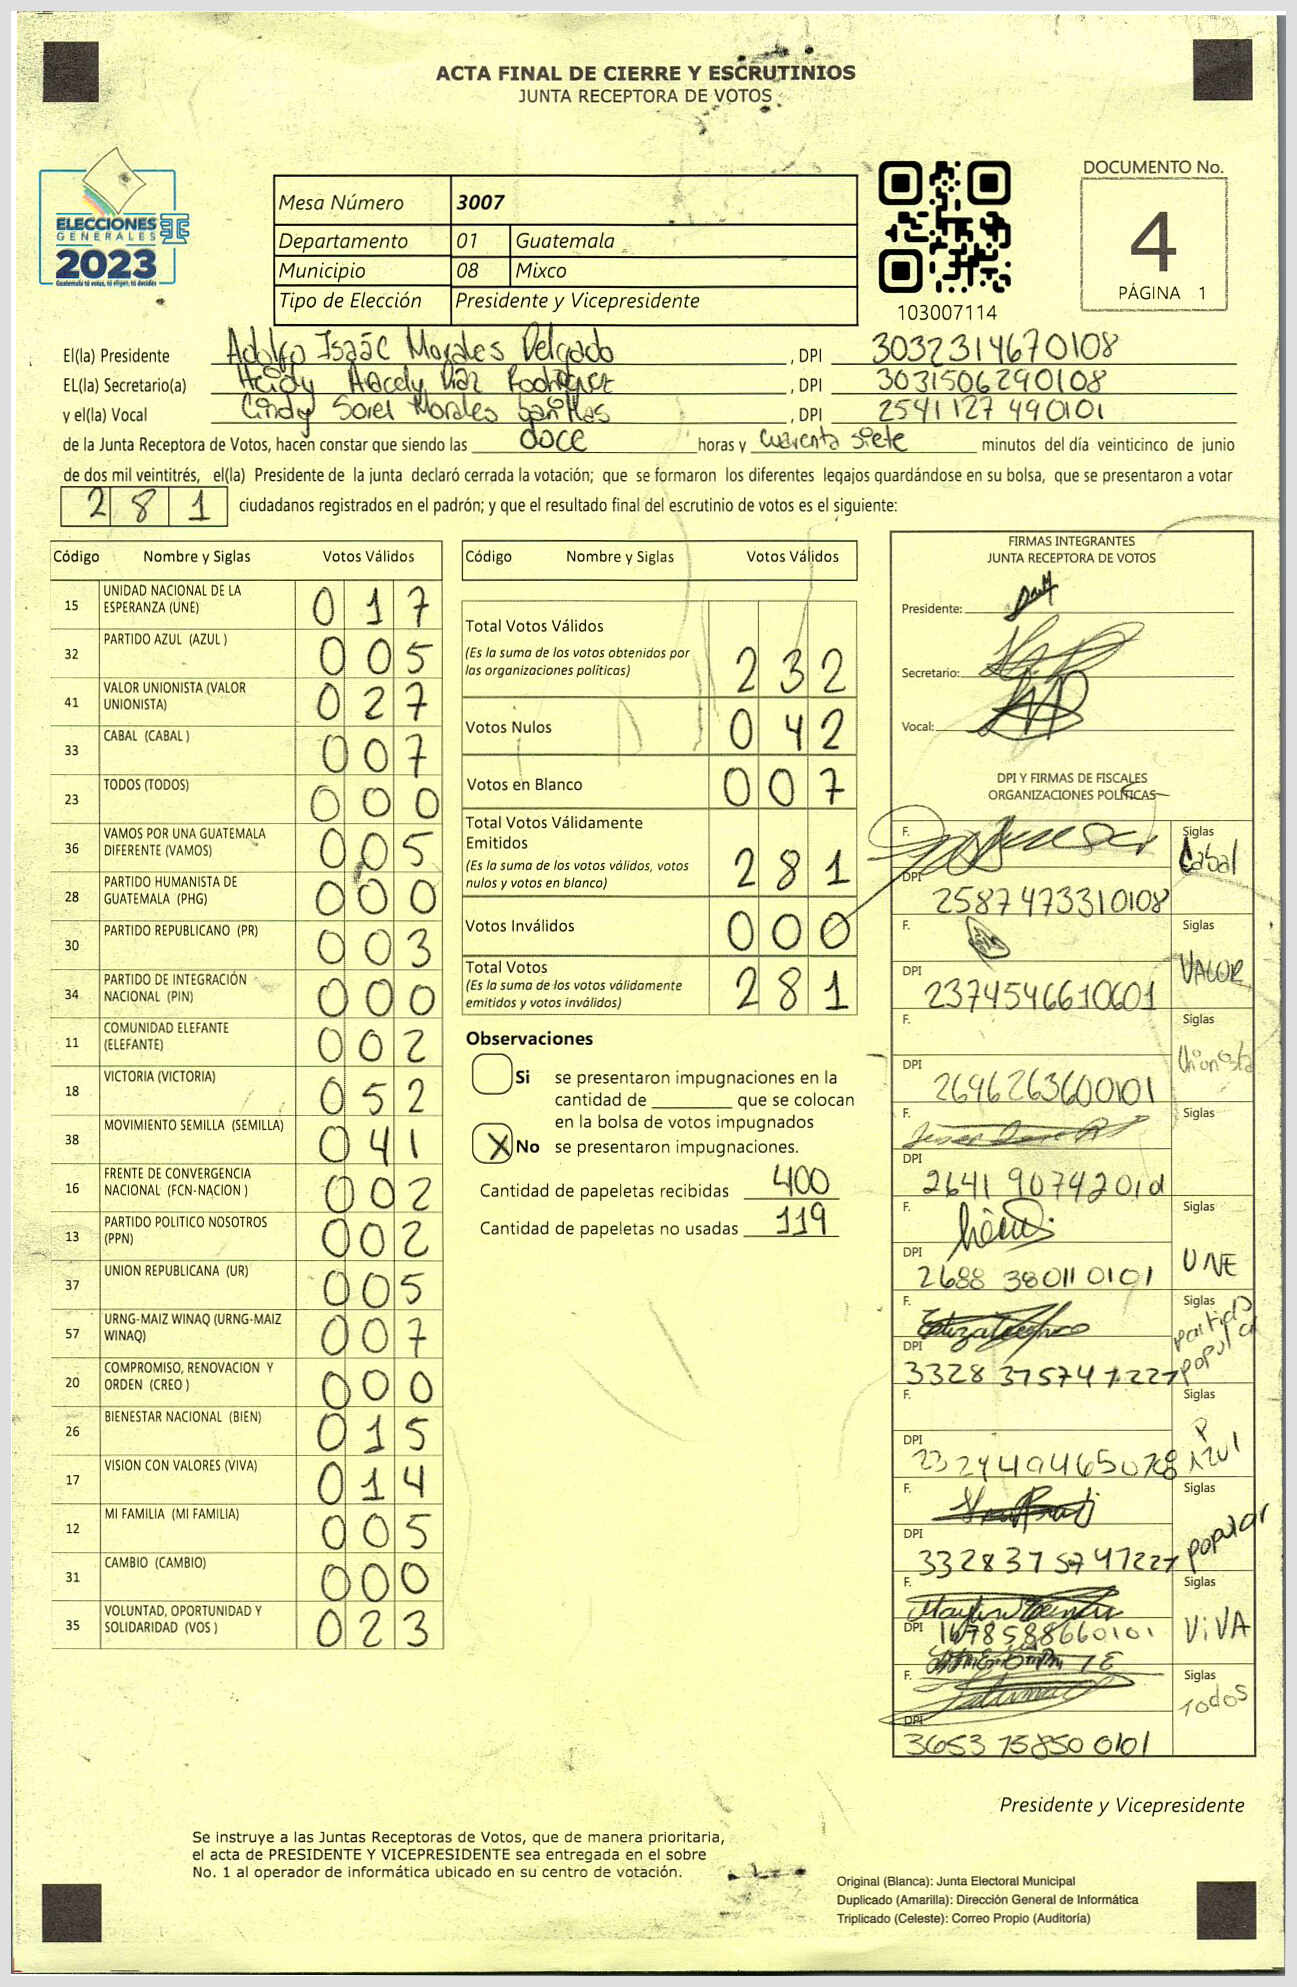 ACTA FINAL DE CIERRE Y ESCRUTINIOS
JUNTA RECEPTORA DE VOTOS
ELECCIONES
GENERALES
2023
Guatemala tú votas, tú eliges, tú decides
Mesa Número 3007
Departamento 01 Guatemala
Municipio 08 Mixco
Tipo de Elección Presidente y Vicepresidente
103007114
DOCUMENTO No.
4
PÁGINA 1
El(la) Presidente Adolfo Isaác Morales Delgado , DPI 3032314670108
EL(la) Secretario(a) Heidy Aracely Díaz Rodríguez , DPI 3031506290108
y el(la) Vocal Cindy Sorel Morales , DPI 2541127490101
de la Junta Receptora de Votos, hacen constar que siendo las doce horas y cuarenta siete minutos del día veinticinco de junio
de dos mil veintitrés, el(la) Presidente de la junta declaró cerrada la votación; que se formaron los diferentes legajos guardándose en su bolsa, que se presentaron a votar
281 ciudadanos registrados en el padrón; y que el resultado final del escrutinio de votos es el siguiente:
Código Nombre y Siglas Votos Válidos
15 UNIDAD NACIONAL DE LA ESPERANZA (UNE) 017
32 PARTIDO AZUL (AZUL ) 005
41 VALOR UNIONISTA (VALOR UNIONISTA) 027
33 CABAL (CABAL ) 007
23 TODOS (TODOS) 000
36 VAMOS POR UNA GUATEMALA DIFERENTE (VAMOS) 005
28 PARTIDO HUMANISTA DE GUATEMALA (PHG) 000
30 PARTIDO REPUBLICANO (PR) 003
34 PARTIDO DE INTEGRACIÓN NACIONAL (PIN) 000
11 COMUNIDAD ELEFANTE (ELEFANTE) 002
18 VICTORIA (VICTORIA) 052
38 MOVIMIENTO SEMILLA (SEMILLA) 041
16 FRENTE DE CONVERGENCIA NACIONAL (FCN-NACION ) 002
13 PARTIDO POLITICO NOSOTROS (PPN) 002
37 UNION REPUBLICANA (UR) 005
57 URNG-MAIZ WINAQ (URNG-MAIZ WINAQ) 007
20 COMPROMISO, RENOVACION Y ORDEN (CREO ) 000
26 BIENESTAR NACIONAL (BIEN) 015
17 VISION CON VALORES (VIVA) 014
12 MI FAMILIA (MI FAMILIA) 005
31 CAMBIO (CAMBIO) 000
35 VOLUNTAD, OPORTUNIDAD Y SOLIDARIDAD (VOS ) 023
Código Nombre y Siglas Votos Válidos
Total Votos Válidos 232
(Es la suma de los votos obtenidos por
las organizaciones políticas)
Votos Nulos 042
Votos en Blanco 007
Total Votos Válidamente
Emitidos 281
(Es la suma de los votos válidos, votos
nulos y votos en blanco)
Votos Inválidos 000
Total Votos 281
(Es la suma de los votos válidamente
emitidos y votos inválidos)
Observaciones
Si se presentaron impugnaciones en la
cantidad de ________ que se colocan
en la bolsa de votos impugnados
X No se presentaron impugnaciones.
Cantidad de papeletas recibidas 400
Cantidad de papeletas no usadas 119
FIRMAS INTEGRANTES
JUNTA RECEPTORA DE VOTOS
Presidente:
Secretario:
Vocal:
DPI Y FIRMAS DE FISCALES
ORGANIZACIONES POLÍTICAS
F. Siglas Cabal
DPI 2587473310108
F. Siglas VALOR
DPI 2374546610601
F. Siglas Unionista
DPI 2696263600101
F. Siglas
DPI 2641 90742 01d
F. Siglas UNE
DPI 2688 38011 0101
F. Siglas partido popular
DPI 3328 37574 1227
F. Siglas P Azul
DPI
F. Siglas popular
DPI 3328375747227
F. Siglas ViVA
DPI 1678588660101
F. Siglas Todos
DPI 3653 75850 0101
Presidente y Vicepresidente
Se instruye a las Juntas Receptoras de Votos, que de manera prioritaria,
el acta de PRESIDENTE Y VICEPRESIDENTE sea entregada en el sobre
No. 1 al operador de informática ubicado en su centro de votación.
Original (Blanca): Junta Electoral Municipal
Duplicado (Amarilla): Dirección General de Informática
Triplicado (Celeste): Correo Propio (Auditoría)